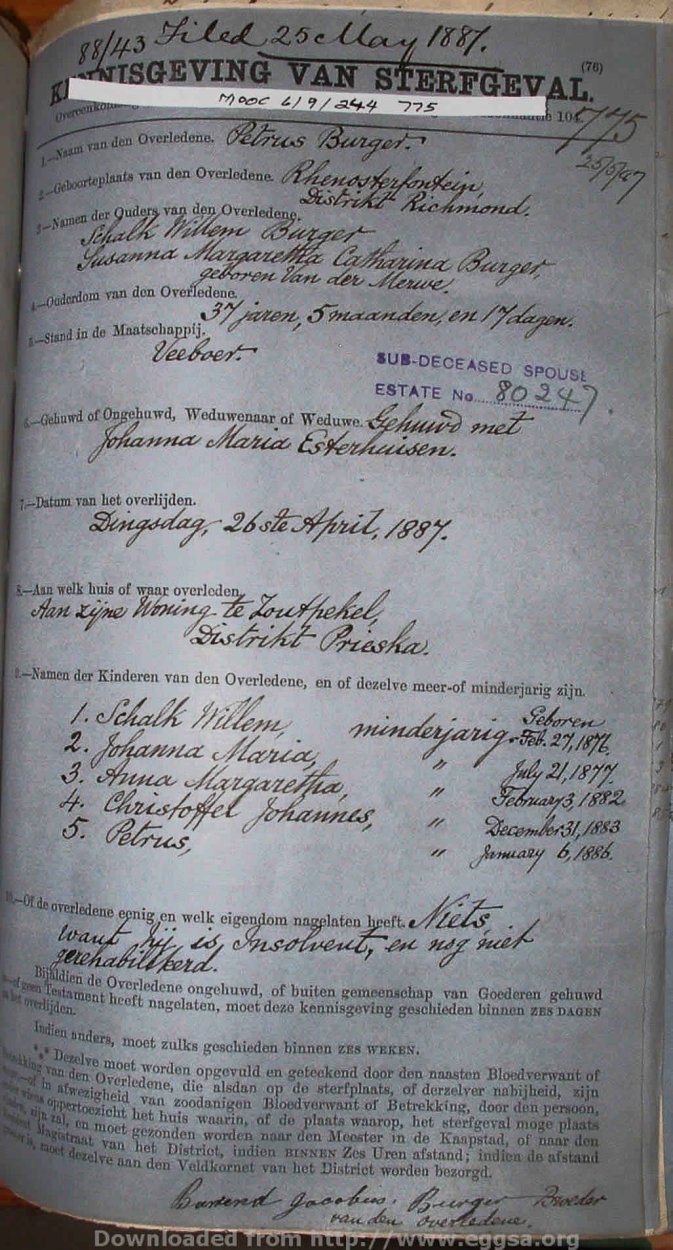 88/43 Filed 25 May 1887.
(76)
KENNISGEVING VAN STERFGEVAL.
MOOC 6/9/244 775
775
25/5/87
1.—Naam van den Overledene. Petrus Burger.
2.—Geboorteplaats van den Overledene. Rhenosterfontein,
Distrikt Richmond.
3—Namen der Ouders van den Overledene.
Schalk Willem Burger
Susanna Margaretha Catharina Burger,
geboren Van der Merwe.
4.—Ouderdom van den Overledene.
37 jaren, 5 maanden, en 17 dagen.
5.—Stand in de Maatschappij.
Veeboer.
SUB-DECEASED SPOUSE
ESTATE No. 80247.
6.—Gehuwd of Ongehuwd, Weduwenaar of Weduwe. Gehuwd met
Johanna Maria Esterhuisen.
7.—Datum van het overlijden.
Dingsdag, 26ste April, 1887.
8.—Aan welk huis of waar overleden.
Aan zijne Woning te Zoutpekel,
Distrikt Prieska.
9.—Namen der Kinderen van den Overledene, en of dezelve meer-of minderjarig zijn.
Geboren
1. Schalk Willem, minderjarig. Feb. 27, 1876.
2. Johanna Maria, " July 21, 1877.
3. Anna Margaretha, " February 3, 1882
4. Christoffel Johannes, " December 31, 1883
5. Petrus, " January 6, 1886.
10.—Of de overledene eenig en welk eigendom nagelaten heeft. Niets,
want hij is Insolvent, en nog niet
gerehabiliteerd.
Bijaldien de Overledene ongehuwd, of buiten gemeenschap van Goederen gehuwd
of geen Testament heeft nagelaten, moet deze kennisgeving geschieden binnen ZES DAGEN
het overlijden.
Indien anders, moet zulks geschieden binnen ZES WEKEN.
⁂ Dezelve moet worden opgevuld en geteekend door den naasten Bloedverwant of
van den Overledene, die alsdan op de sterfplaats, of derzelver nabijheid, zijn
of in afwezigheid van zoodanigen Bloedverwant of Betrekking, door den persoon,
wiens oppertoezicht het huis waarin, of de plaats waarop, het sterfgeval moge plaats
zijn zal, en moet gezonden worden naar den Meester in de Kaapstad, of naar den
Magistraat van het District, indien BINNEN Zes Uren afstand; indien de afstand
is, moet dezelve aan den Veldkornet van het District worden bezorgd.
Barend Jacobus Burger Broeder
van den overledene.
Downloaded from http://www.eggsa.org